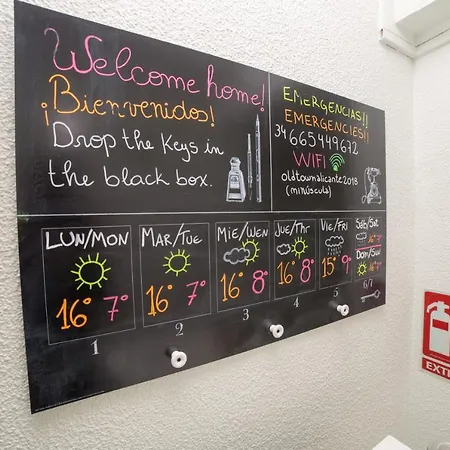 Welcome home!
¡Bienvenidos!
Drop the keys in
the black box.
EMERGENCIAS!!
EMERGENCIES!!
34 665449672
WIFI
oldtownalicante2018
(minúscula)
LUN/MON
16° 7°
1
MAR/TUE
16° 7°
2
MIE/WEN
16° 8°
3
JUE/THR
16° 8°
4
VIE/FRI
15° 9°
5
Sáb/Sat
16° 7°
Dom/Sun
16° 7°
6/7
EXTI